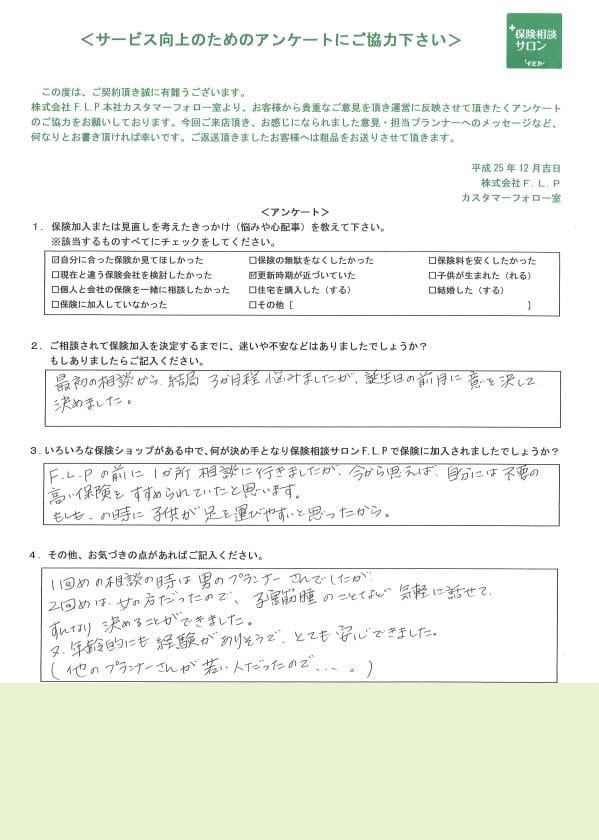 ＜サービス向上のためのアンケートにご協力下さい＞
保険相談
サロン
F.L.P
この度は、ご契約頂き誠に有難うございます。
株式会社F.L.P本社カスタマーフォロー室より、お客様から貴重なご意見を頂き運営に反映させて頂きたくアンケート
のご協力をお願いしております。今回ご来店頂き、お感じになられました意見・担当プランナーへのメッセージなど、
何なりとお書き頂ければ幸いです。ご返送頂きましたお客様へは粗品をお送りさせて頂きます。
平成25年12月吉日
株式会社F.L.P
カスタマーフォロー室
＜アンケート＞
1．保険加入または見直しを考えたきっかけ（悩みや心配事）を教えて下さい。
※該当するものすべてにチェックをしてください。
☑自分に合った保険か見てほしかった □保険の無駄をなくしたかった □保険料を安くしたかった
□現在と違う保険会社を検討したかった ☑更新時期が近づいていた □子供が生まれた（れる）
□個人と会社の保険を一緒に相談したかった □住宅を購入した（する） □結婚した（する）
□保険に加入していなかった □その他［ ］
2．ご相談されて保険加入を決定するまでに、迷いや不安などはありましたでしょうか？
もしありましたらご記入ください。
最初の相談から、結局 3か月程 悩みましたが、誕生日の前月に意を決して
決めました。
3．いろいろな保険ショップがある中で、何が決め手となり保険相談サロンF.L.Pで保険に加入されましたでしょうか？
F.L.Pの前に1か所 相談に行きましたが、今から思えば、自分には不要の
高い保険をすすめられていたと思います。
もしも、の時に子供が足を運びやすいと思ったから。
4．その他、お気づきの点があればご記入ください。
1回めの相談の時は男のプランナーさんでしたが
2回めは、女の方だったので、子宮筋腫のことなど気軽に話せて、
すんなり決めることができました。
又、年齢的にも経験がありそうで、とても安心できました。
（他のプランナーさんが若い人だったので、、、。）